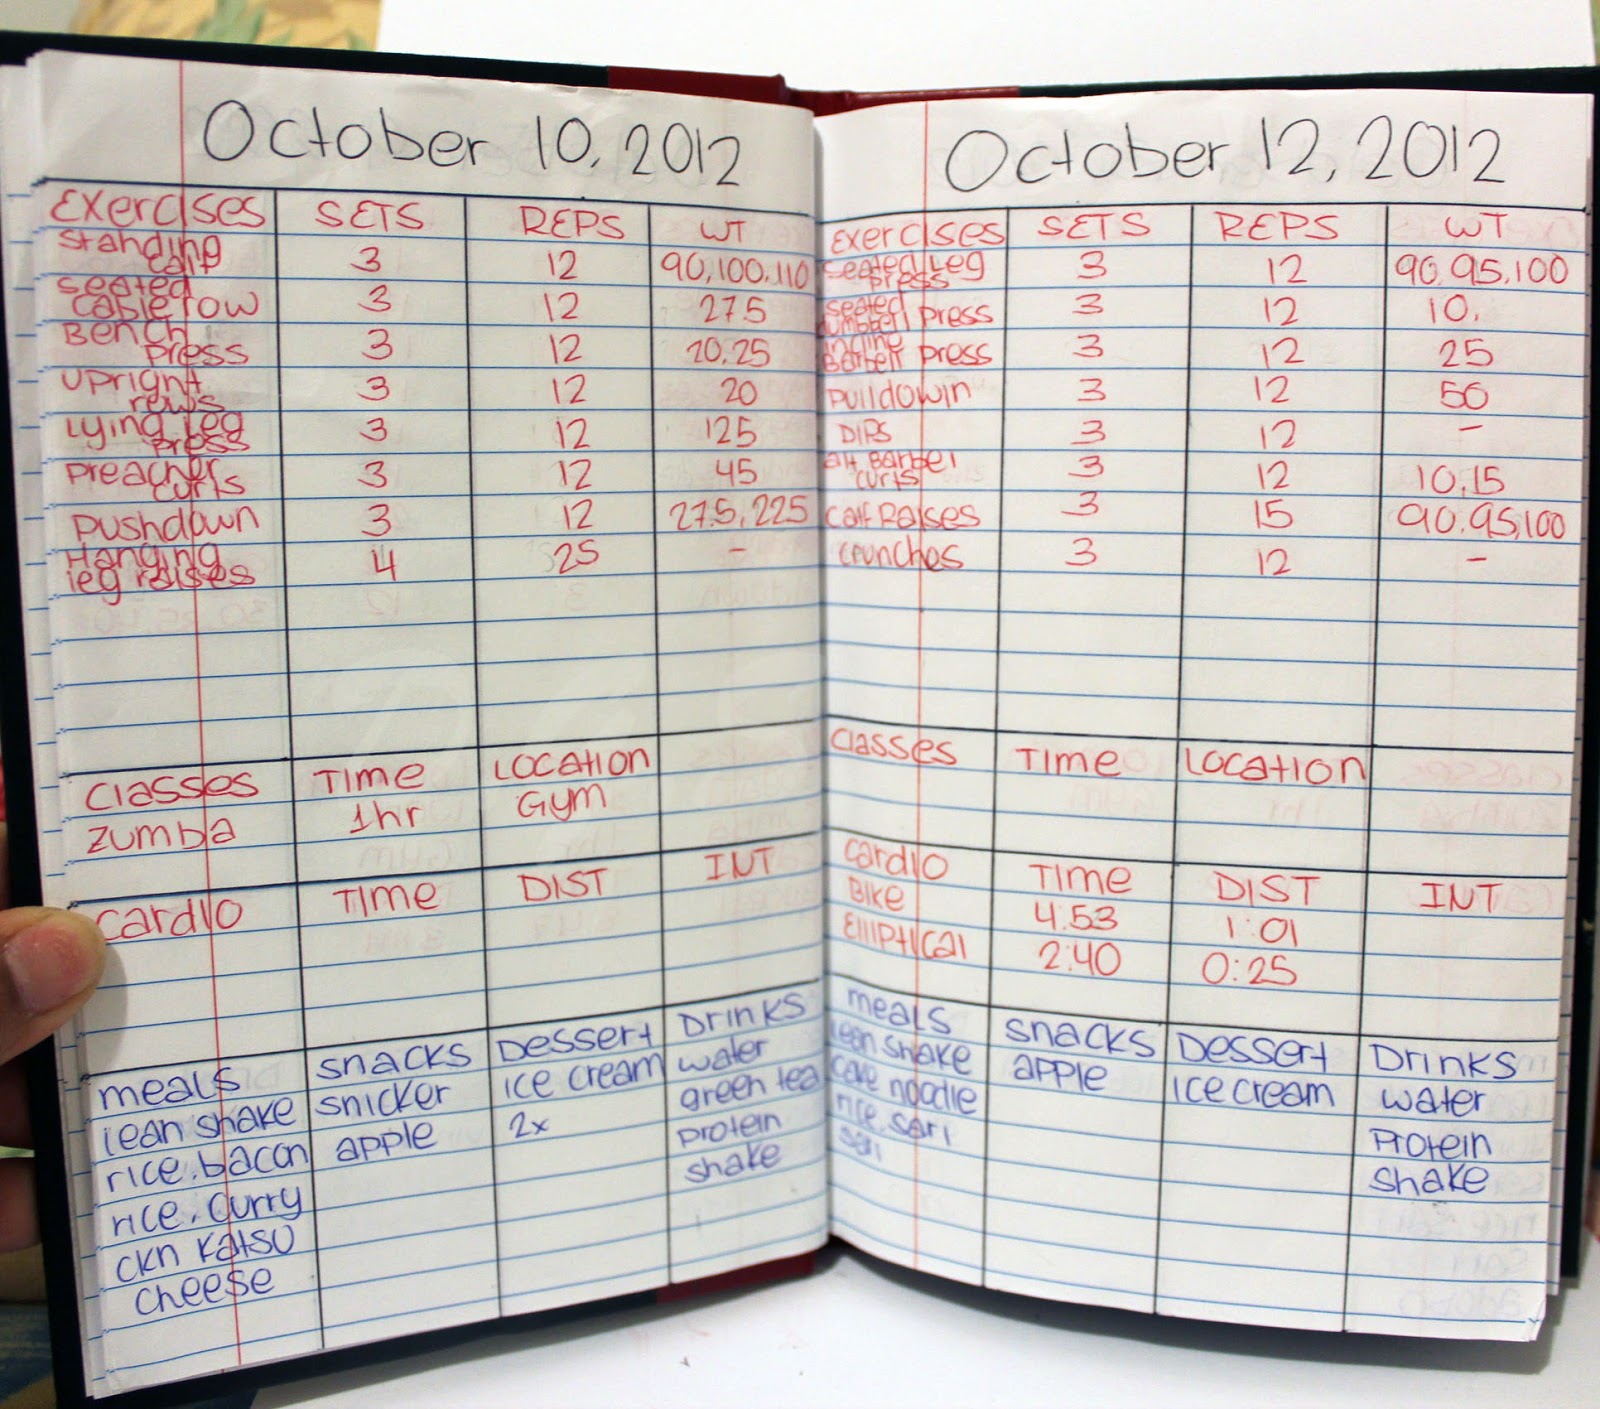 October 10, 2012
Exercises SETS REPS WT
Standing calf 3 12 90,100,110
Seated cable row 3 12 27.5
Bench press 3 12 20,25
upright rows 3 12 20
Lying Leg press 3 12 125
preacher curls 3 12 45
pushdown 3 12 27.5, 22.5
Hanging leg raises 4 25 -
classes Time Location
zumba 1hr Gym
cardio Time DIST INT
meals snacks Dessert Drinks
lean shake snicker ice cream water
rice, bacon apple 2x green tea
rice, curry protein
ckn katsu shake
cheese
October 12, 2012
Exercises SETS REPS WT
seated Leg press 3 12 90,95,100
seated dumbbell press 3 12 10,
incline Barbell press 3 12 25
pulldowin 3 12 50
DIPS 3 12 -
alt Barbel curls 3 12 10,15
calf Raises 3 15 90,95,100
crunches 3 12 -
classes Time Location
cardio Time DIST INT
Bike 4:53 1:01
Elliptical 2:40 0:25
meals snacks Dessert Drinks
lean shake apple ice cream water
noodle Protein
rice, sari shake
sari